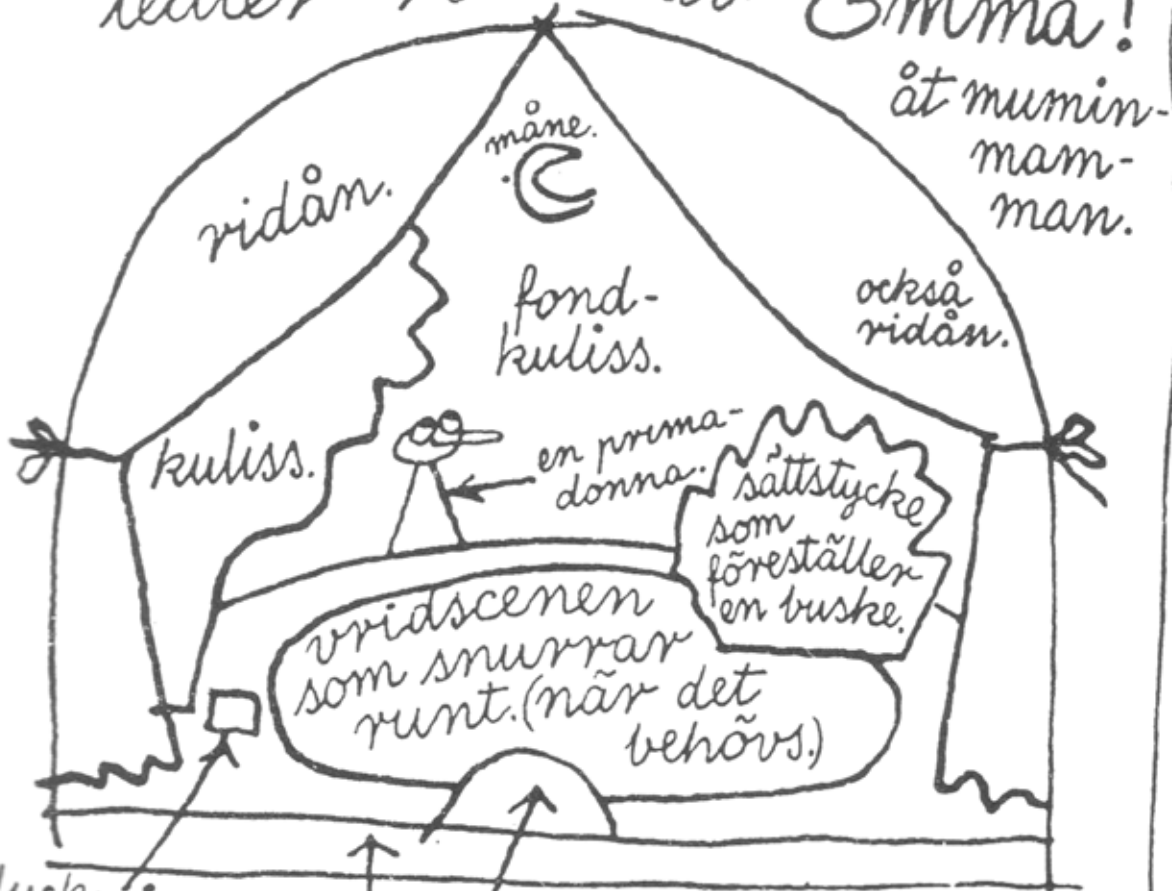 teater
Emma!
åt mumin-
mam-
man.
måne.
ridån.
fond-
kuliss.
också
ridån.
kuliss.
en prima-
donna.
sättstycke
som
föreställer
en buske.
vridscenen
som snurrar
runt. (när det
behövs.)